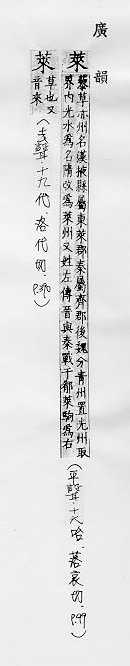 廣韻
萊
藜草亦州名漢掖縣屬東萊郡秦屬齊郡後魏分青州置光州取
界內光水為名隋改為萊州又姓左傳晉與秦戰于郩萊駒為右
(平聲.十六咍.落哀切.P.99)
萊
草也又
音來
(去聲.十九代.洛代切.P.390)